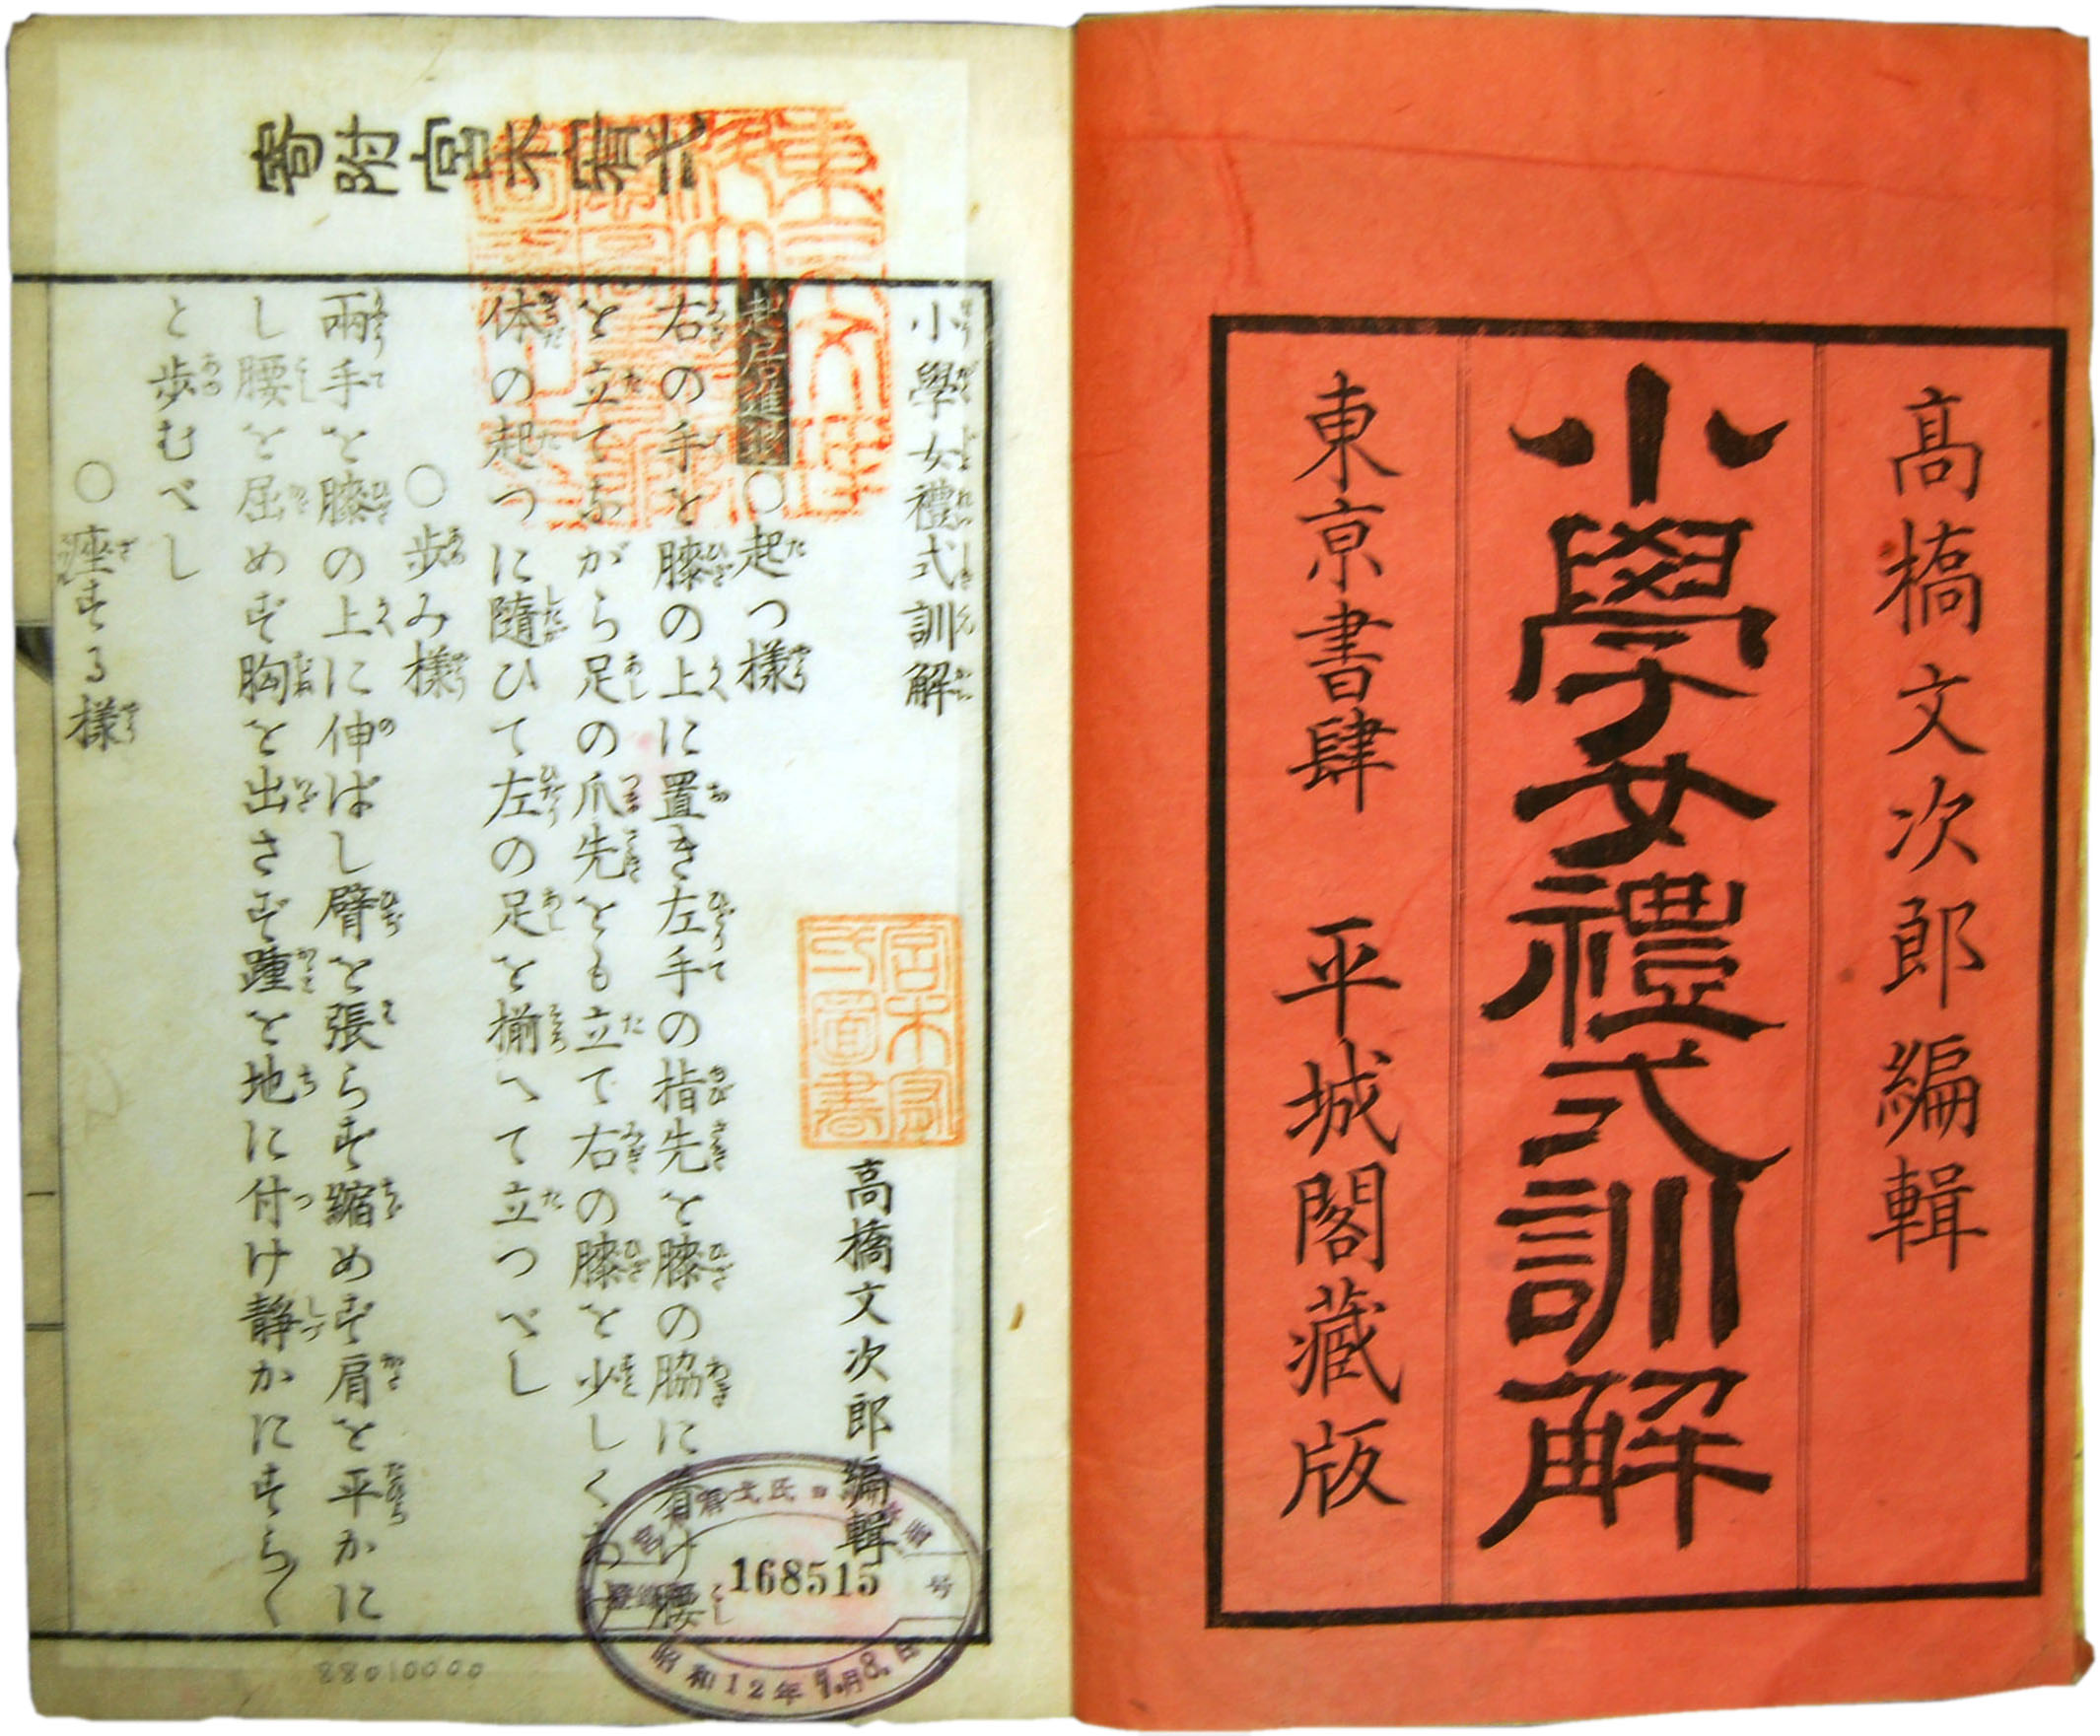 高橋文次郎編輯
小學女禮式訓解
東京書肆 平城閣藏版
寄附宮本
小學女禮式訓解
高橋文次郎編輯
起居進退 ○起つ様
右の手を膝の上に置き左手の指先を膝の脇に着け腰
を立てながら足の爪先をも立て右の膝を少しく
体の起つに隨ひて左の足を揃へて立つべし
○歩み様
兩手を膝の上に伸ばし臂を張らず縮めず肩を平かに
し腰を屈めず胸を出さず踵を地に付け静かにすら〱
と歩むべし
○座する様
宮木家
圖書
168515
号
昭和12年9月8日
88010000